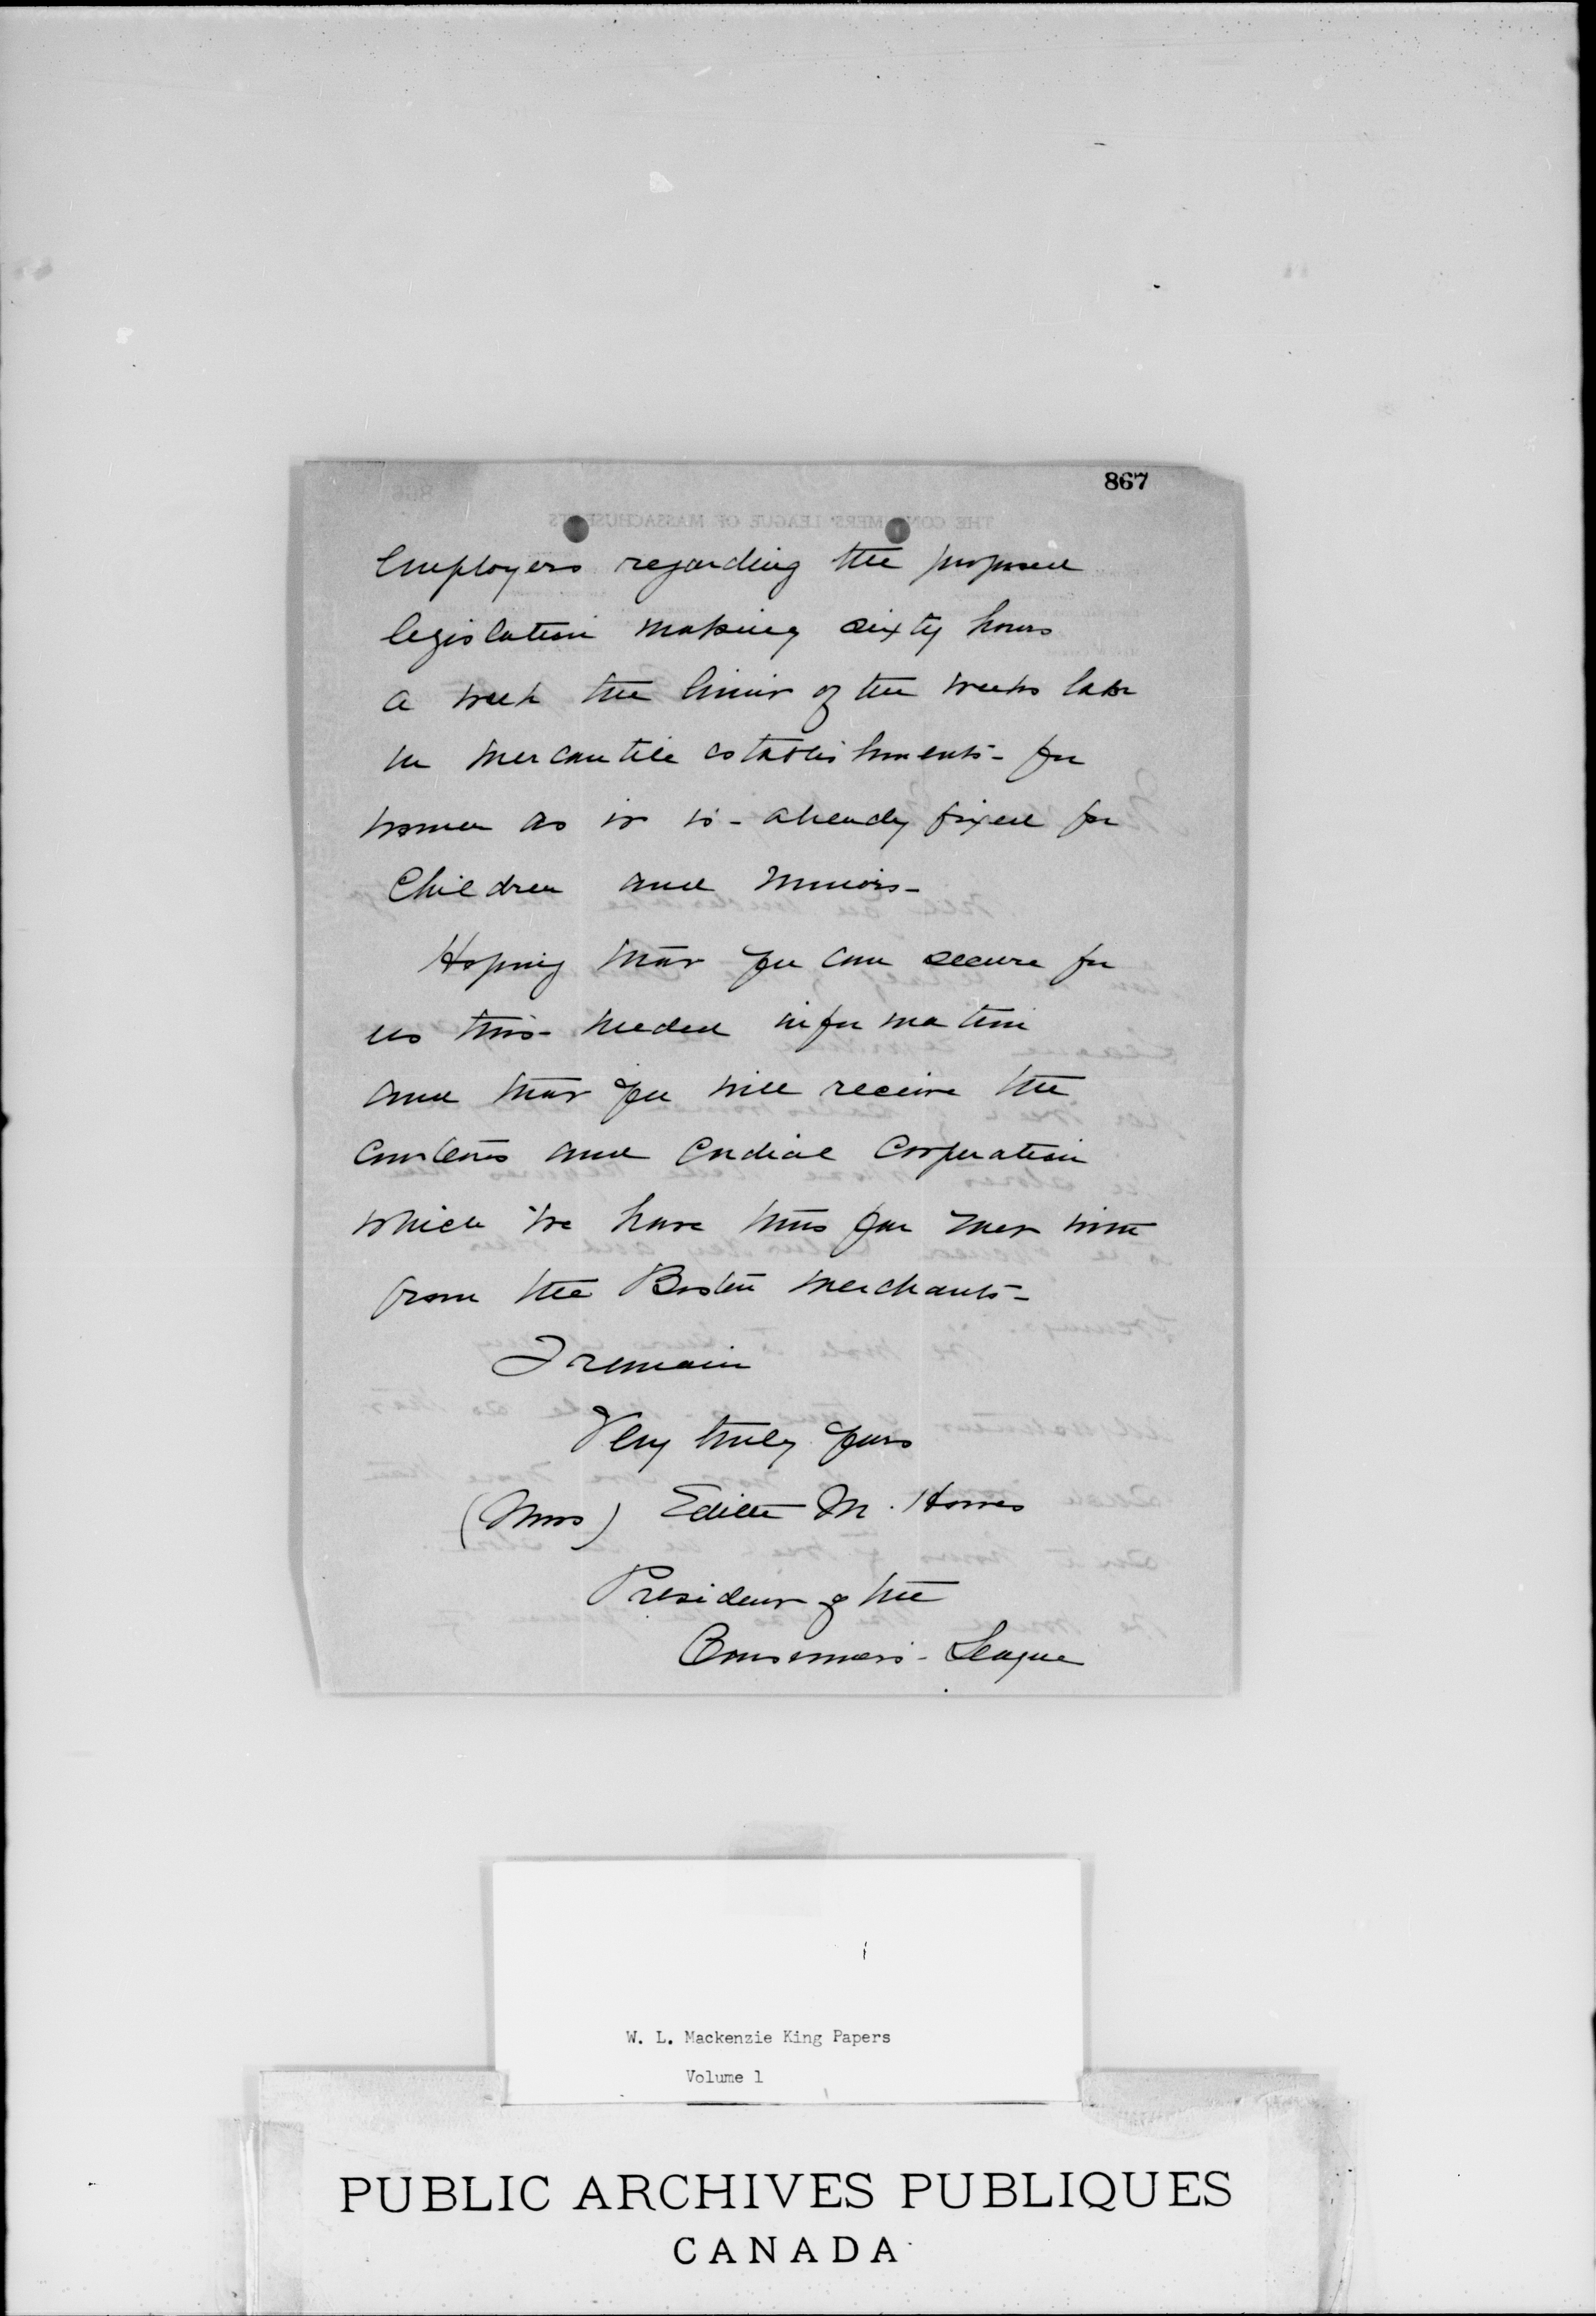 867
employers regarding the proposed
legislation making sixty hours
a week the limit of the weeks labor
in mercantile establishments - for
women as it is - already fixed for
Children and minors -
Hoping that you can secure for
us this - needed information
and that you will receive the
courteous and cordial cooperation
which we have thus far met with
from the Boston merchants -
I remain
Very truly yours
(Mrs) Edith M. Howes
President of the
Consumers - League
W. L. Mackenzie King Papers
Volume 1
PUBLIC ARCHIVES PUBLIQUES
CANADA